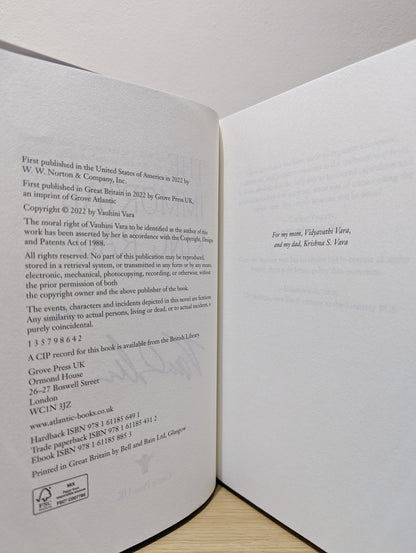 First published in the United States of America in 2022 by
W. W. Norton & Company, Inc.
First published in Great Britain in 2022 by Grove Press UK,
an imprint of Grove Atlantic
Copyright © 2022 by Vauhini Vara
The moral right of Vauhini Vara to be identified as the author of this
work has been asserted by her in accordance with the Copyright, Designs
and Patents Act of 1988.
All rights reserved. No part of this publication may be reproduced,
stored in a retrieval system, or transmitted in any form or by any means,
electronic, mechanical, photocopying, recording, or otherwise, without
the prior permission of both
the copyright owner and the above publisher of the book.
The events, characters and incidents depicted in this novel are fictitious.
Any similarity to actual persons, living or dead, or to actual incidents, is
purely coincidental.
1 3 5 7 9 8 6 4 2
A CIP record for this book is available from the British Library
Grove Press UK
Ormond House
26–27 Boswell Street
London
WC1N 3JZ
www.atlantic-books.co.uk
Hardback ISBN 978 1 61185 649 1
Trade paperback ISBN 978 1 61185 431 2
Ebook ISBN 978 1 61185 885 3
Printed in Great Britain by Bell and Bain Ltd, Glasgow
FSC
MIX
For my mom, Vidyavathi Vara,
and my dad, Krishna S. Vara